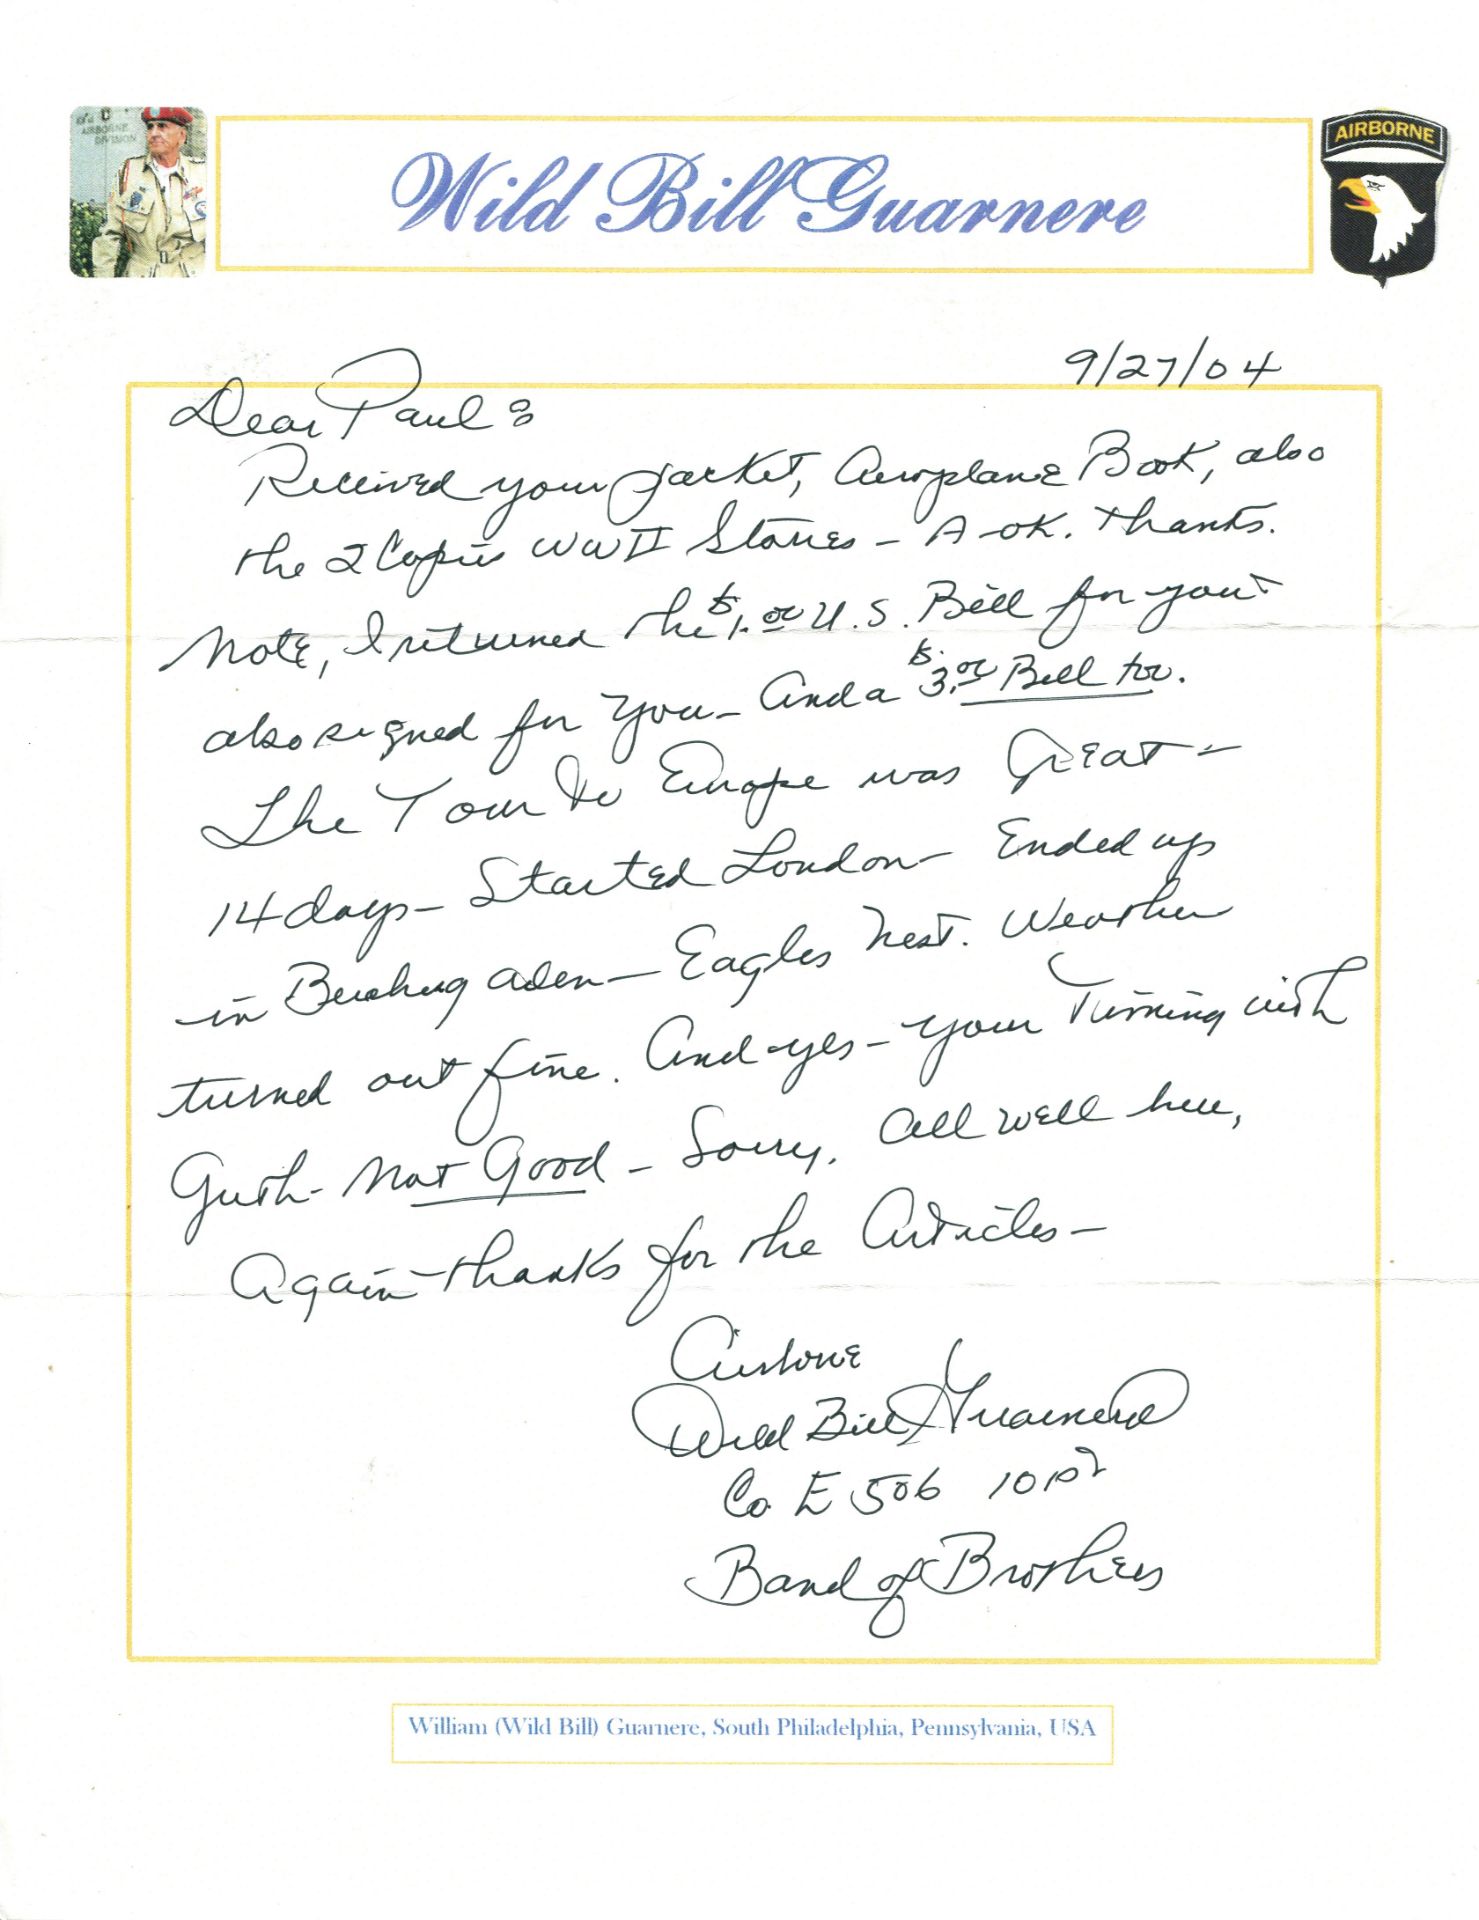 AIRBORNE DIVISION
Wild Bill Guarnere
AIRBORNE
9/27/04
Dear Paul:
Received your jacket, Aeroplane Book, also
the 2 Copies WW II Stories - A-OK. Thanks.
Note, I returned the $1.00 U.S. Bill for you
also signed for you - And a $3.00 Bill too.
The Tour to Europe was Great -
14 days - Started London - Ended up
in - Eagles Nest. Weather
turned out fine. And - yes - your Timing with
Guth - Not Good - Sorry. All well here,
Again - thanks for the Articles -
Airborne
Wild Bill Guarnere
Co. E 506 101
Band of Brothers
William (Wild Bill) Guarnere, South Philadelphia, Pennsylvania, USA